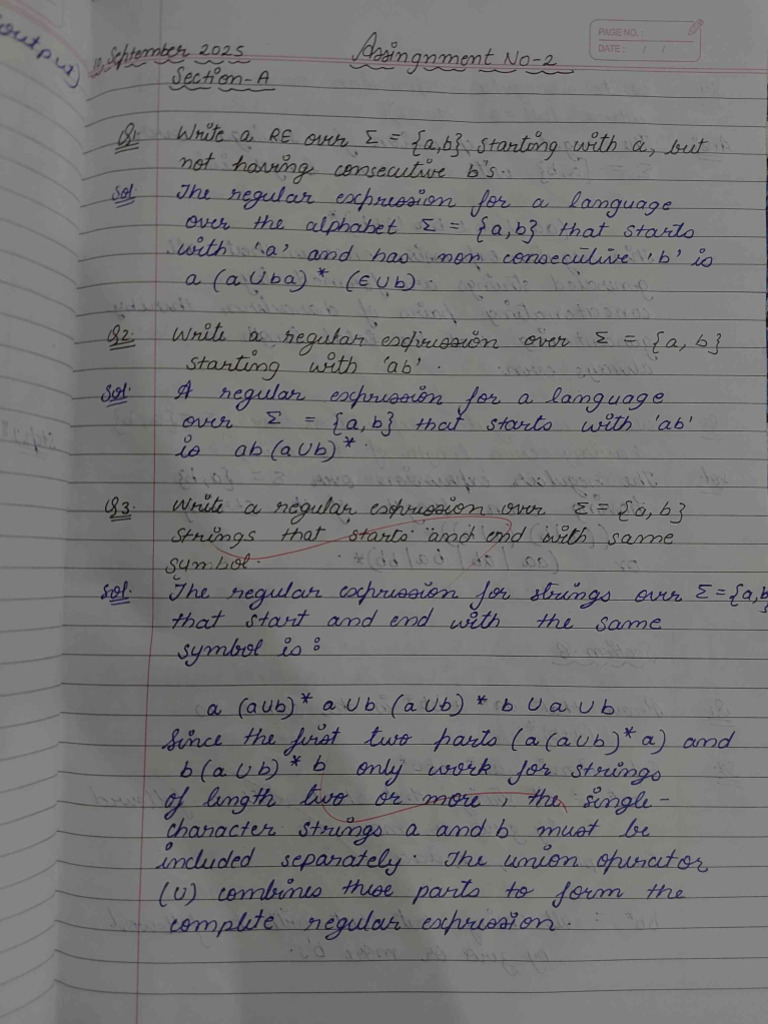 output)
September 2025
Assingnment No-2
PAGE NO.:
DATE: / /
Section-A
Q1. Write a RE over Σ = {a,b} starting with a, but
not having consecutive b's.
Sol. The regular expression for a language
over the alphabet Σ = {a,b} that starts
with 'a' and has non consecutive 'b' is
a (a∪ba)* (∈∪b)
Q2. Write a regular expression over Σ = {a, b}
starting with 'ab'.
Sol. A regular expression for a language
over Σ = {a,b} that starts with 'ab'
is ab (a∪b)*.
Q3. Write a regular expression over Σ = {a, b}
strings that starts and end with same
symbol.
Sol. The regular expression for strings over Σ={a,b}
that start and end with the same
symbol is :
a (a∪b)* a ∪ b (a∪b)* b ∪ a ∪ b
Since the first two parts (a(a∪b)* a) and
b(a∪b)* b only work for strings
of length two or more, the single-
character strings a and b must be
included separately. The union operator
(∪) combines these parts to form the
complete regular expression.